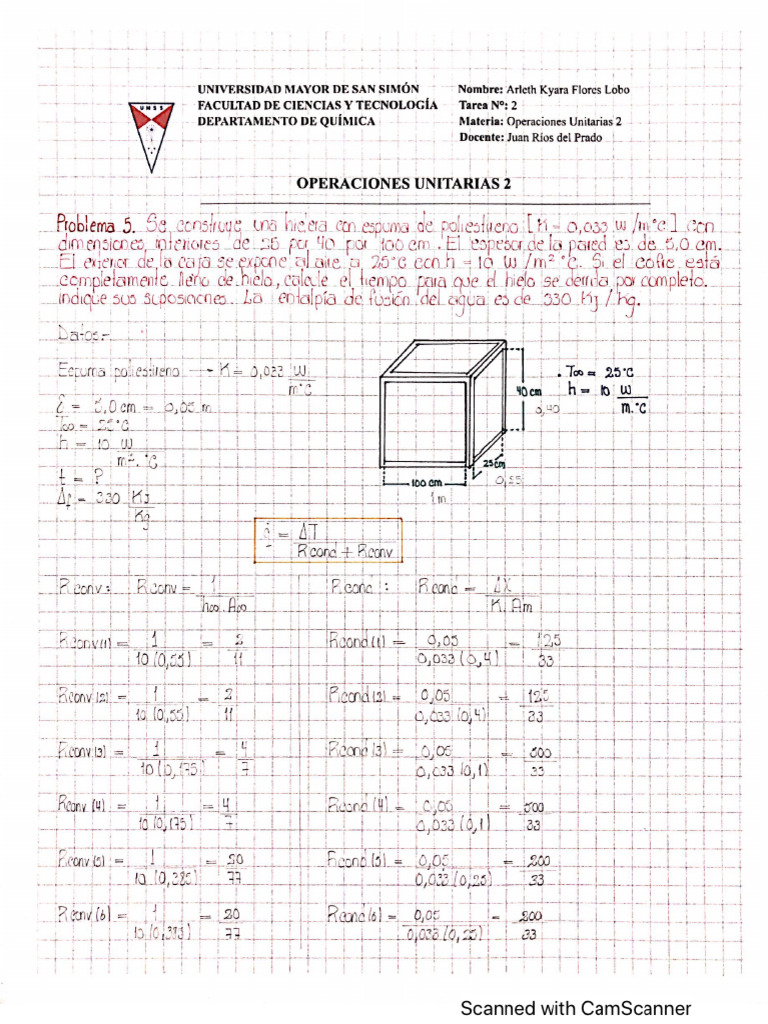 UNIVERSIDAD MAYOR DE SAN SIMÓN
FACULTAD DE CIENCIAS Y TECNOLOGÍA
DEPARTAMENTO DE QUÍMICA
Nombre: Arleth Kyara Flores Lobo
Tarea N°: 2
Materia: Operaciones Unitarias 2
Docente: Juan Ríos del Prado
UMSS
OPERACIONES UNITARIAS 2
Problema 5. Se construye una hielera con espuma de poliestireno [K = 0,033 W/m°C] con
dimensiones interiores de 25 por 40 por 100 cm. El espesor de la pared es de 5,0 cm.
El exterior de la caja se expone al aire a 25°C con h = 10 W/m² °C. Si el cofre está
completamente lleno de hielo, calcule el tiempo para que el hielo se derrita por completo.
Indique sus suposiciones. La entalpía de fusión del agua es de 330 Kj/kg.
Datos.-
Espuma poliestireno → K = 0,033 W/m°C
= 5,0 cm = 0,05 m
T∞ = 25°C
h = 10 W/m². °C
t = ?
Δf = 330 KJ/Kg
40 cm
0,40
25 cm
100 cm
1m
. T∞ = 25°C
h = 10 W/m.°C
= ΔT/(Rcond + Rconv)
Rconv: Rconv = 1/(h∞. A∞) Rcond: Rcond = ΔX/(K. Am)
Rconv(1) = 1/10(0,55) = 2/11 Rcond(1) = 0,05/0,033(0,4) = 125/33
Rconv(2) = 1/10(0,55) = 2/11 Rcond(2) = 0,05/0,033(0,4) = 125/33
Rconv(3) = 1/10(0,175) = 4/7 Rcond(3) = 0,05/0,033(0,1) = 500/33
Rconv(4) = 1/10(0,175) = 4/7 Rcond(4) = 0,05/0,033(0,1) = 500/33
Rconv(5) = 1/10(0,385) = 20/77 Rcond(5) = 0,05/0,033(0,25) = 200/33
Rconv(6) = 1/10(0,385) = 20/77 Rcond(6) = 0,05/0,033(0,25) = 200/33
Scanned with CamScanner